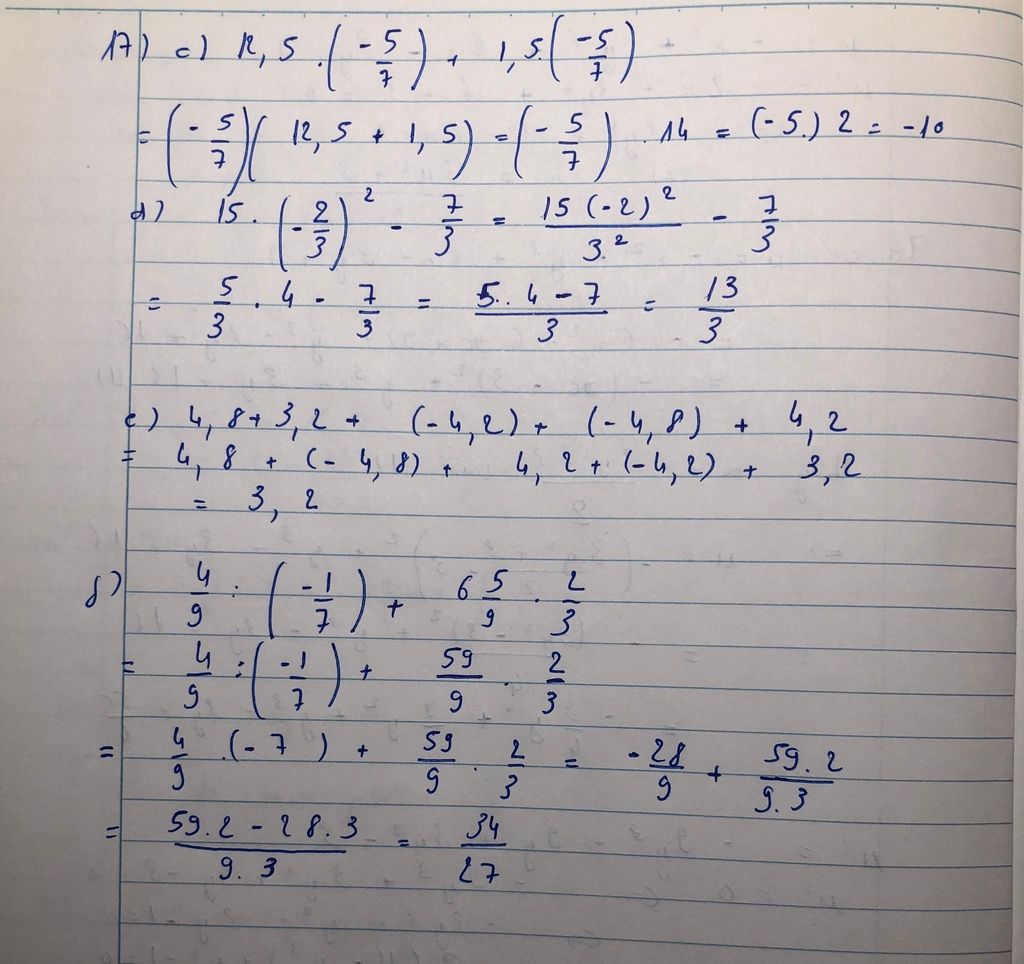 17) c) 12,5 . (-5/7) + 1,5. (-5/7)
= (-5/7)(12,5 + 1,5) = (-5/7) . 14 = (-5.) 2 = -10
d) 15. (-2/3)² - 7/3 = 15(-2)²/3.² - 7/3
= 5/3 . 4 - 7/3 = 5..4-7/3 = 13/3
e) 4,8+3,2+ (-4,2) + (-4,8) + 4,2
= 4,8 + (-4,8) + 4,2 + (-4,2) + 3,2
= 3,2
f) 4/9 : (-1/7) + 6 5/9 . 2/3
= 4/9 : (-1/7) + 59/9 . 2/3
= 4/9 .(-7) + 59/9 . 2/3 = -28/9 + 59.2/9.3
= 59.2-28.3/9.3 = 34/27